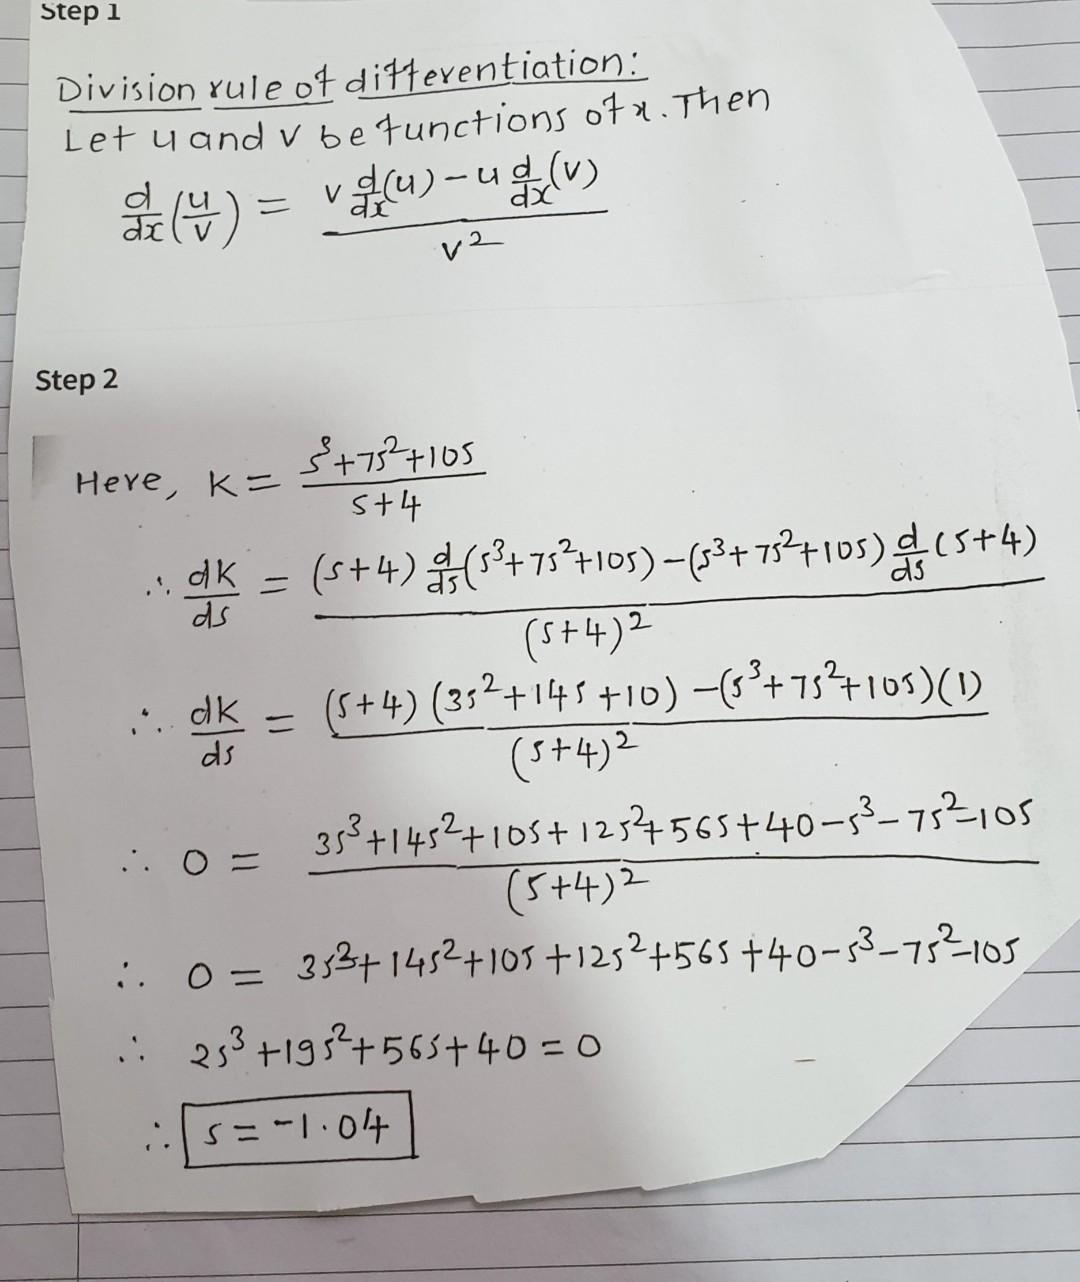 Step 1
Division rule of differentiation:
Let u and v be functions of x. Then
d/dx (u/v) = (v d/dx (u) - u d/dx (v)) / v²
Step 2
Here, K = (s³+7s²+10s) / (s+4)
∴ dK/ds = ((s+4) d/ds (s³+7s²+10s) - (s³+7s²+10s) d/ds (s+4)) / (s+4)²
∴ dK/ds = ((s+4) (3s²+14s+10) - (s³+7s²+10s)(1)) / (s+4)²
∴ 0 = (3s³+14s²+10s+12s²+56s+40-s³-7s²-10s) / (s+4)²
∴ 0 = 3s³+14s²+10s+12s²+56s+40-s³-7s²-10s
∴ 2s³+19s²+56s+40=0
∴ s=-1.04